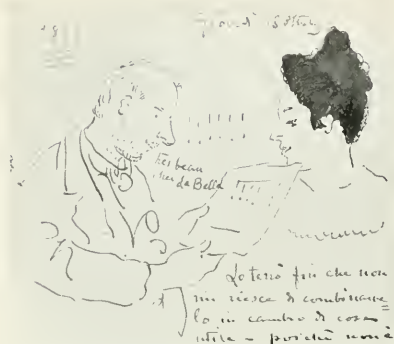 giovedì
très beau
della Bella
Lo terrò fin che non
mi riesce di combinare
lo in cambio di cosa
utile – poichè non è